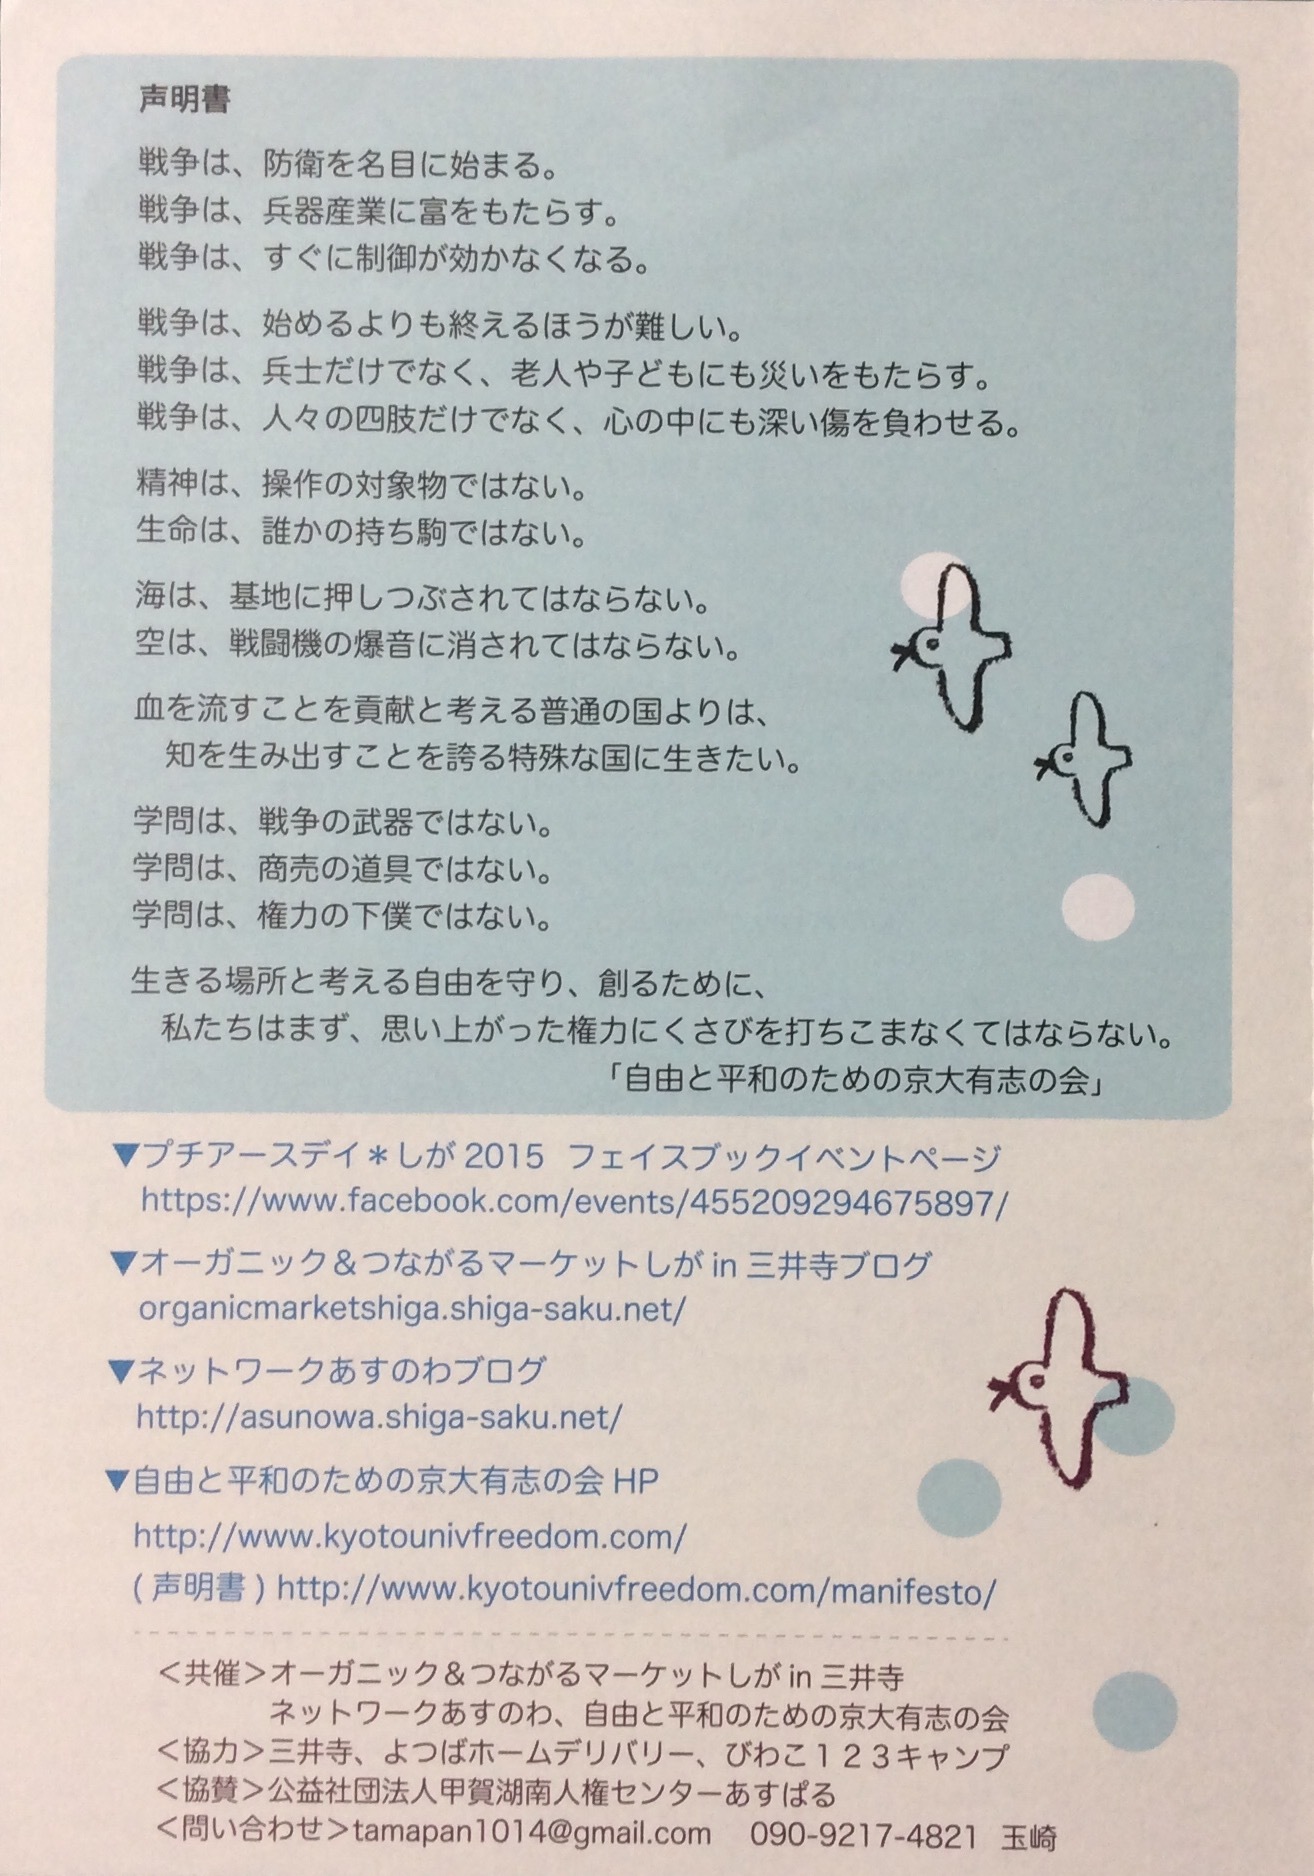 声明書
戦争は、防衛を名目に始まる。
戦争は、兵器産業に富をもたらす。
戦争は、すぐに制御が効かなくなる。
戦争は、始めるよりも終えるほうが難しい。
戦争は、兵士だけでなく、老人や子どもにも災いをもたらす。
戦争は、人々の四肢だけでなく、心の中にも深い傷を負わせる。
精神は、操作の対象物ではない。
生命は、誰かの持ち駒ではない。
海は、基地に押しつぶされてはならない。
空は、戦闘機の爆音に消されてはならない。
血を流すことを貢献と考える普通の国よりは、
知を生み出すことを誇る特殊な国に生きたい。
学問は、戦争の武器ではない。
学問は、商売の道具ではない。
学問は、権力の下僕ではない。
生きる場所と考える自由を守り、創るために、
私たちはまず、思い上がった権力にくさびを打ちこまなくてはならない。
「自由と平和のための京大有志の会」
▼プチアースデイ＊しが2015 フェイスブックイベントページ
https://www.facebook.com/events/455209294675897/
▼オーガニック＆つながるマーケットしが in 三井寺ブログ
organicmarketshiga.shiga-saku.net/
▼ネットワークあすのわブログ
http://asunowa.shiga-saku.net/
▼自由と平和のための京大有志の会 HP
http://www.kyotounivfreedom.com/
( 声明書 ) http://www.kyotounivfreedom.com/manifesto/
＜共催＞オーガニック＆つながるマーケットしが in 三井寺
ネットワークあすのわ、自由と平和のための京大有志の会
＜協力＞三井寺、よつばホームデリバリー、びわこ１２３キャンプ
＜協賛＞公益社団法人甲賀湖南人権センターあすぱる
＜問い合わせ＞tamapan1014@gmail.com 090-9217-4821 玉崎